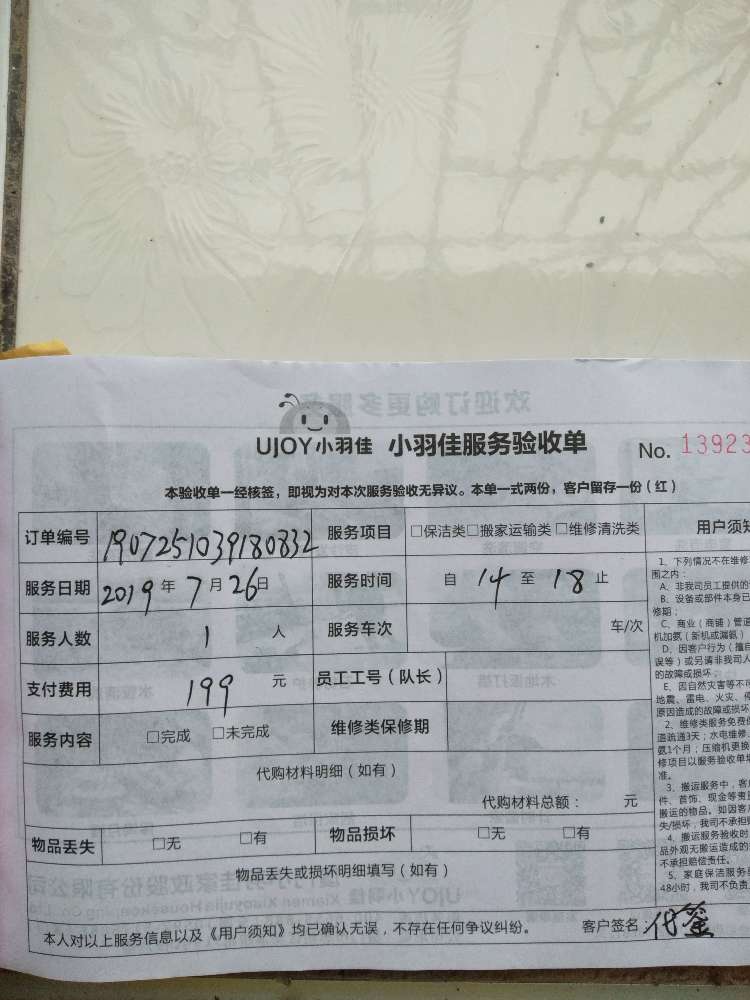 UJOY小羽佳 小羽佳服务验收单 No. 13923
本验收单一经核签，即视为对本次服务验收无异议。本单一式两份，客户留存一份（红）
订单编号 1907251039180832 服务项目 □保洁类□搬家运输类□维修清洗类
服务日期 2019年7月26日 服务时间 自 14 至 18 止
服务人数 1 人 服务车次 车/次
支付费用 199 元 员工工号（队长）
服务内容 □完成 □未完成 维修类保修期
代购材料明细（如有）
代购材料总额： 元
物品丢失 □无 □有 物品损坏 □无 □有
物品丢失或损坏明细填写（如有）
本人对以上服务信息以及《用户须知》均已确认无误，不存在任何争议纠纷。 客户签名：付
用户须知
1、下列情况不在维修
围之内：
A、非我司员工提供的
B、设备或部件本身已
修期；
C、商业（商铺）管道
机加氨（新机或漏氨）
D、因客户行为（擅自
误等）或另请非我司人
的故障或损坏；
E、因自然灾害等不
地震、雷电、火灾、
原因造成的故障或损坏
2、维修类服务免费
道疏通3天；水电维修、
氨1个月；压缩机更换
修项目以服务验收单
准。
3、搬运服务中，客
件、首饰、现金等贵
搬运的物品。如因客
失/损坏，我司不承担
4、搬运服务验收时
品外观无搬运造成的
不承担赔偿责任。
5、家庭保洁服务
48小时，我司不负责